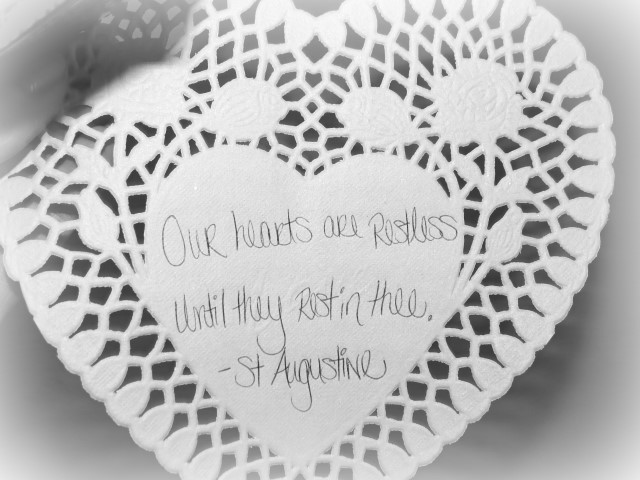 Our hearts are Restless
Until they Rest in thee.
-St Augustine